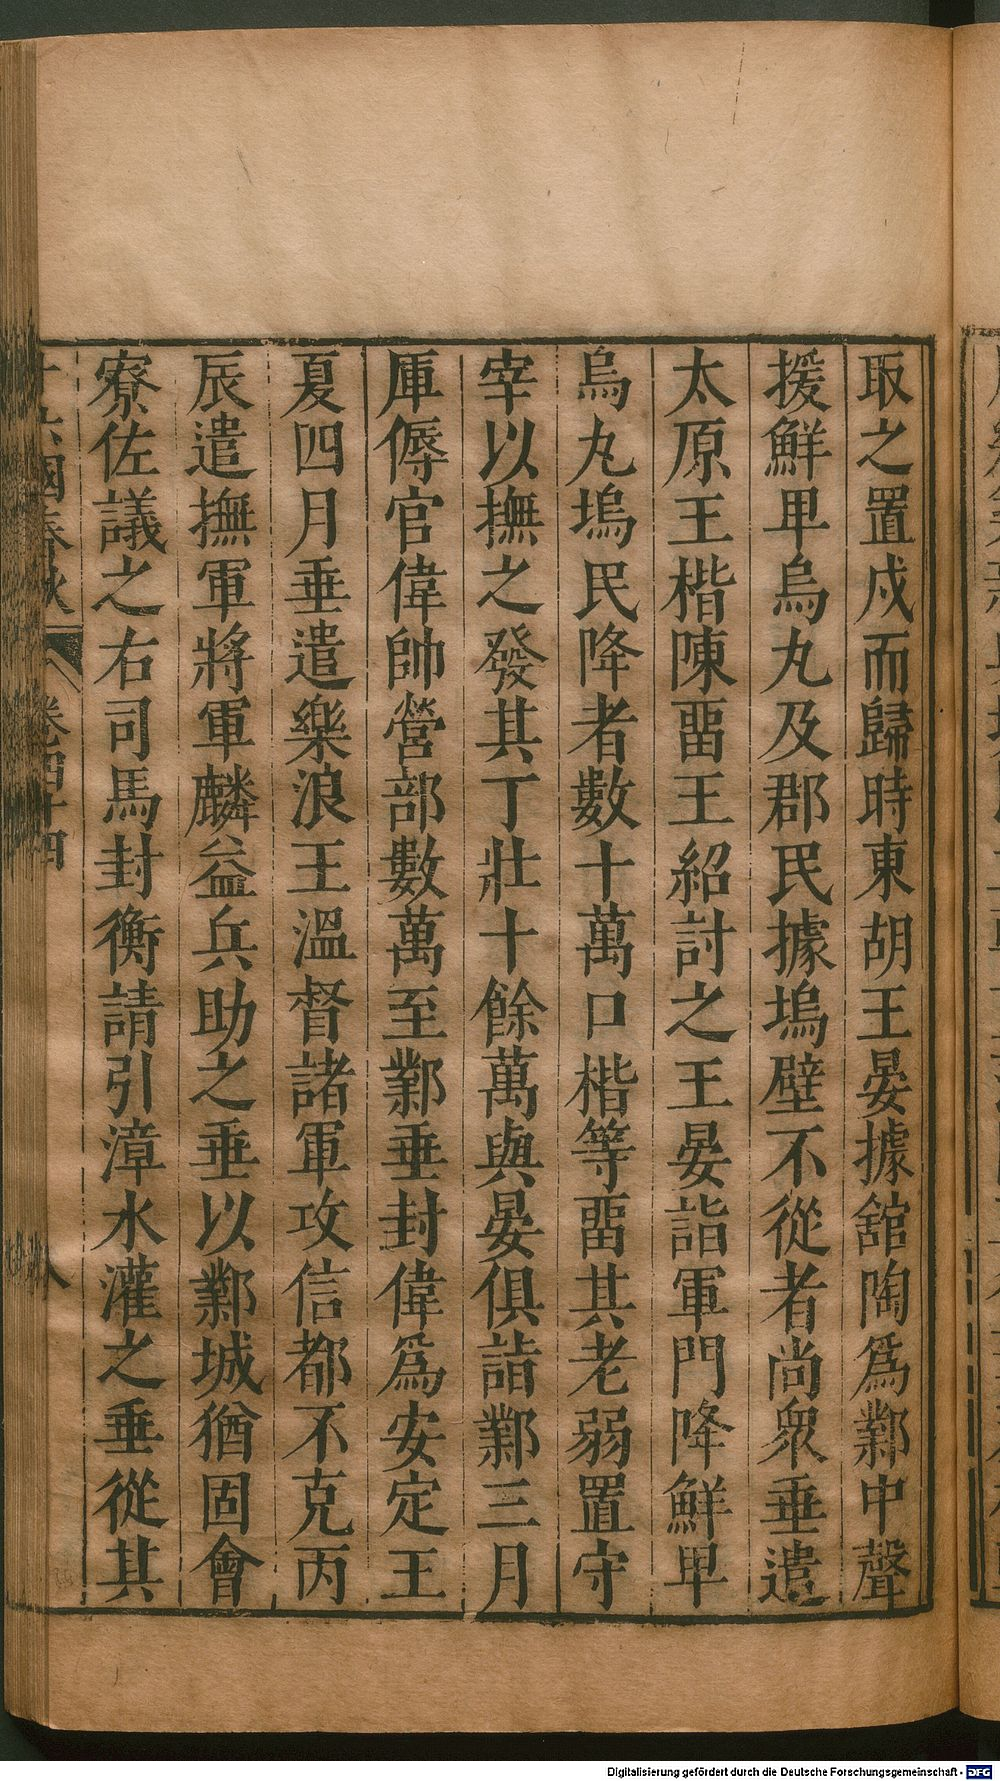 取之置戍而歸時東胡王晏據舘陶爲鄴中聲
援鮮卑烏丸及郡民據塢壁不從者尚衆垂遣
太原王楷陳畱王紹討之王晏詣軍門降鮮卑
烏丸塢民降者數十萬口楷等畱其老弱置守
宰以撫之發其丁壯十餘萬與晏俱詣鄴三月
厙傉官偉帥營部數萬至鄴垂封偉爲安定王
夏四月垂遣樂浪王溫督諸軍攻信都不克丙
辰遣撫軍將軍麟益兵助之垂以鄴城猶固會
寮佐議之右司馬封衡請引漳水灌之垂從其
十六國春秋 卷四十四 八
Digitalisierung gefördert durch die Deutsche Forschungsgemeinschaft - DFG